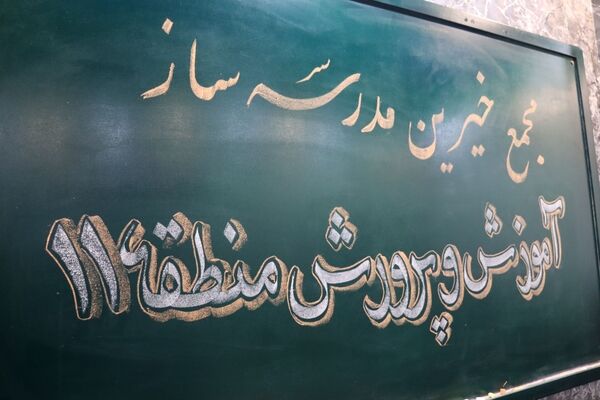 مجمع خیرین مدرسه ساز
آموزش و پرورش منطقه ۱۴